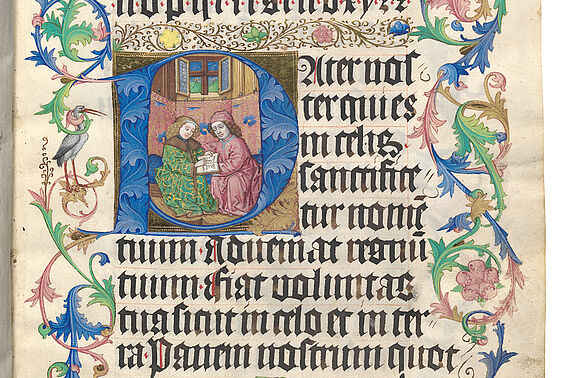 Pater nos
ter qui es
in celis
sanctifice
tur nomē
tuum Adueniat regnū
tuum fiat voluntas
tua sicut in celo et in ter
ra Panem nostrum quot